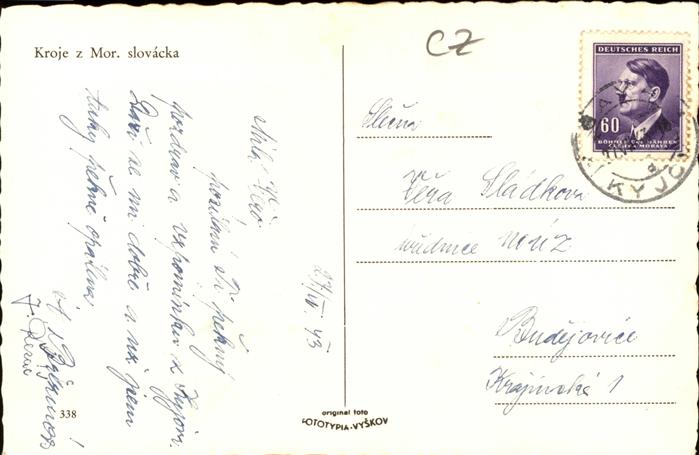 Kroje z Mor. slovácka
CZ
DEUTSCHES REICH
60
BÖHMEN UND MÄHREN
ČECHY A MORAVA
KYJOV
Milá Věro
posílám Ti pěkný
pozdrav a vzpomínku z Kyjova.
Daří se mi dobře a už jsem
taky pěkně opálena
27/IV. 43
Slečna
Věra Sládkova
úřednice
Budějovice
Krajinská 1
338
original foto
FOTOTYPIA-VYŠKOV